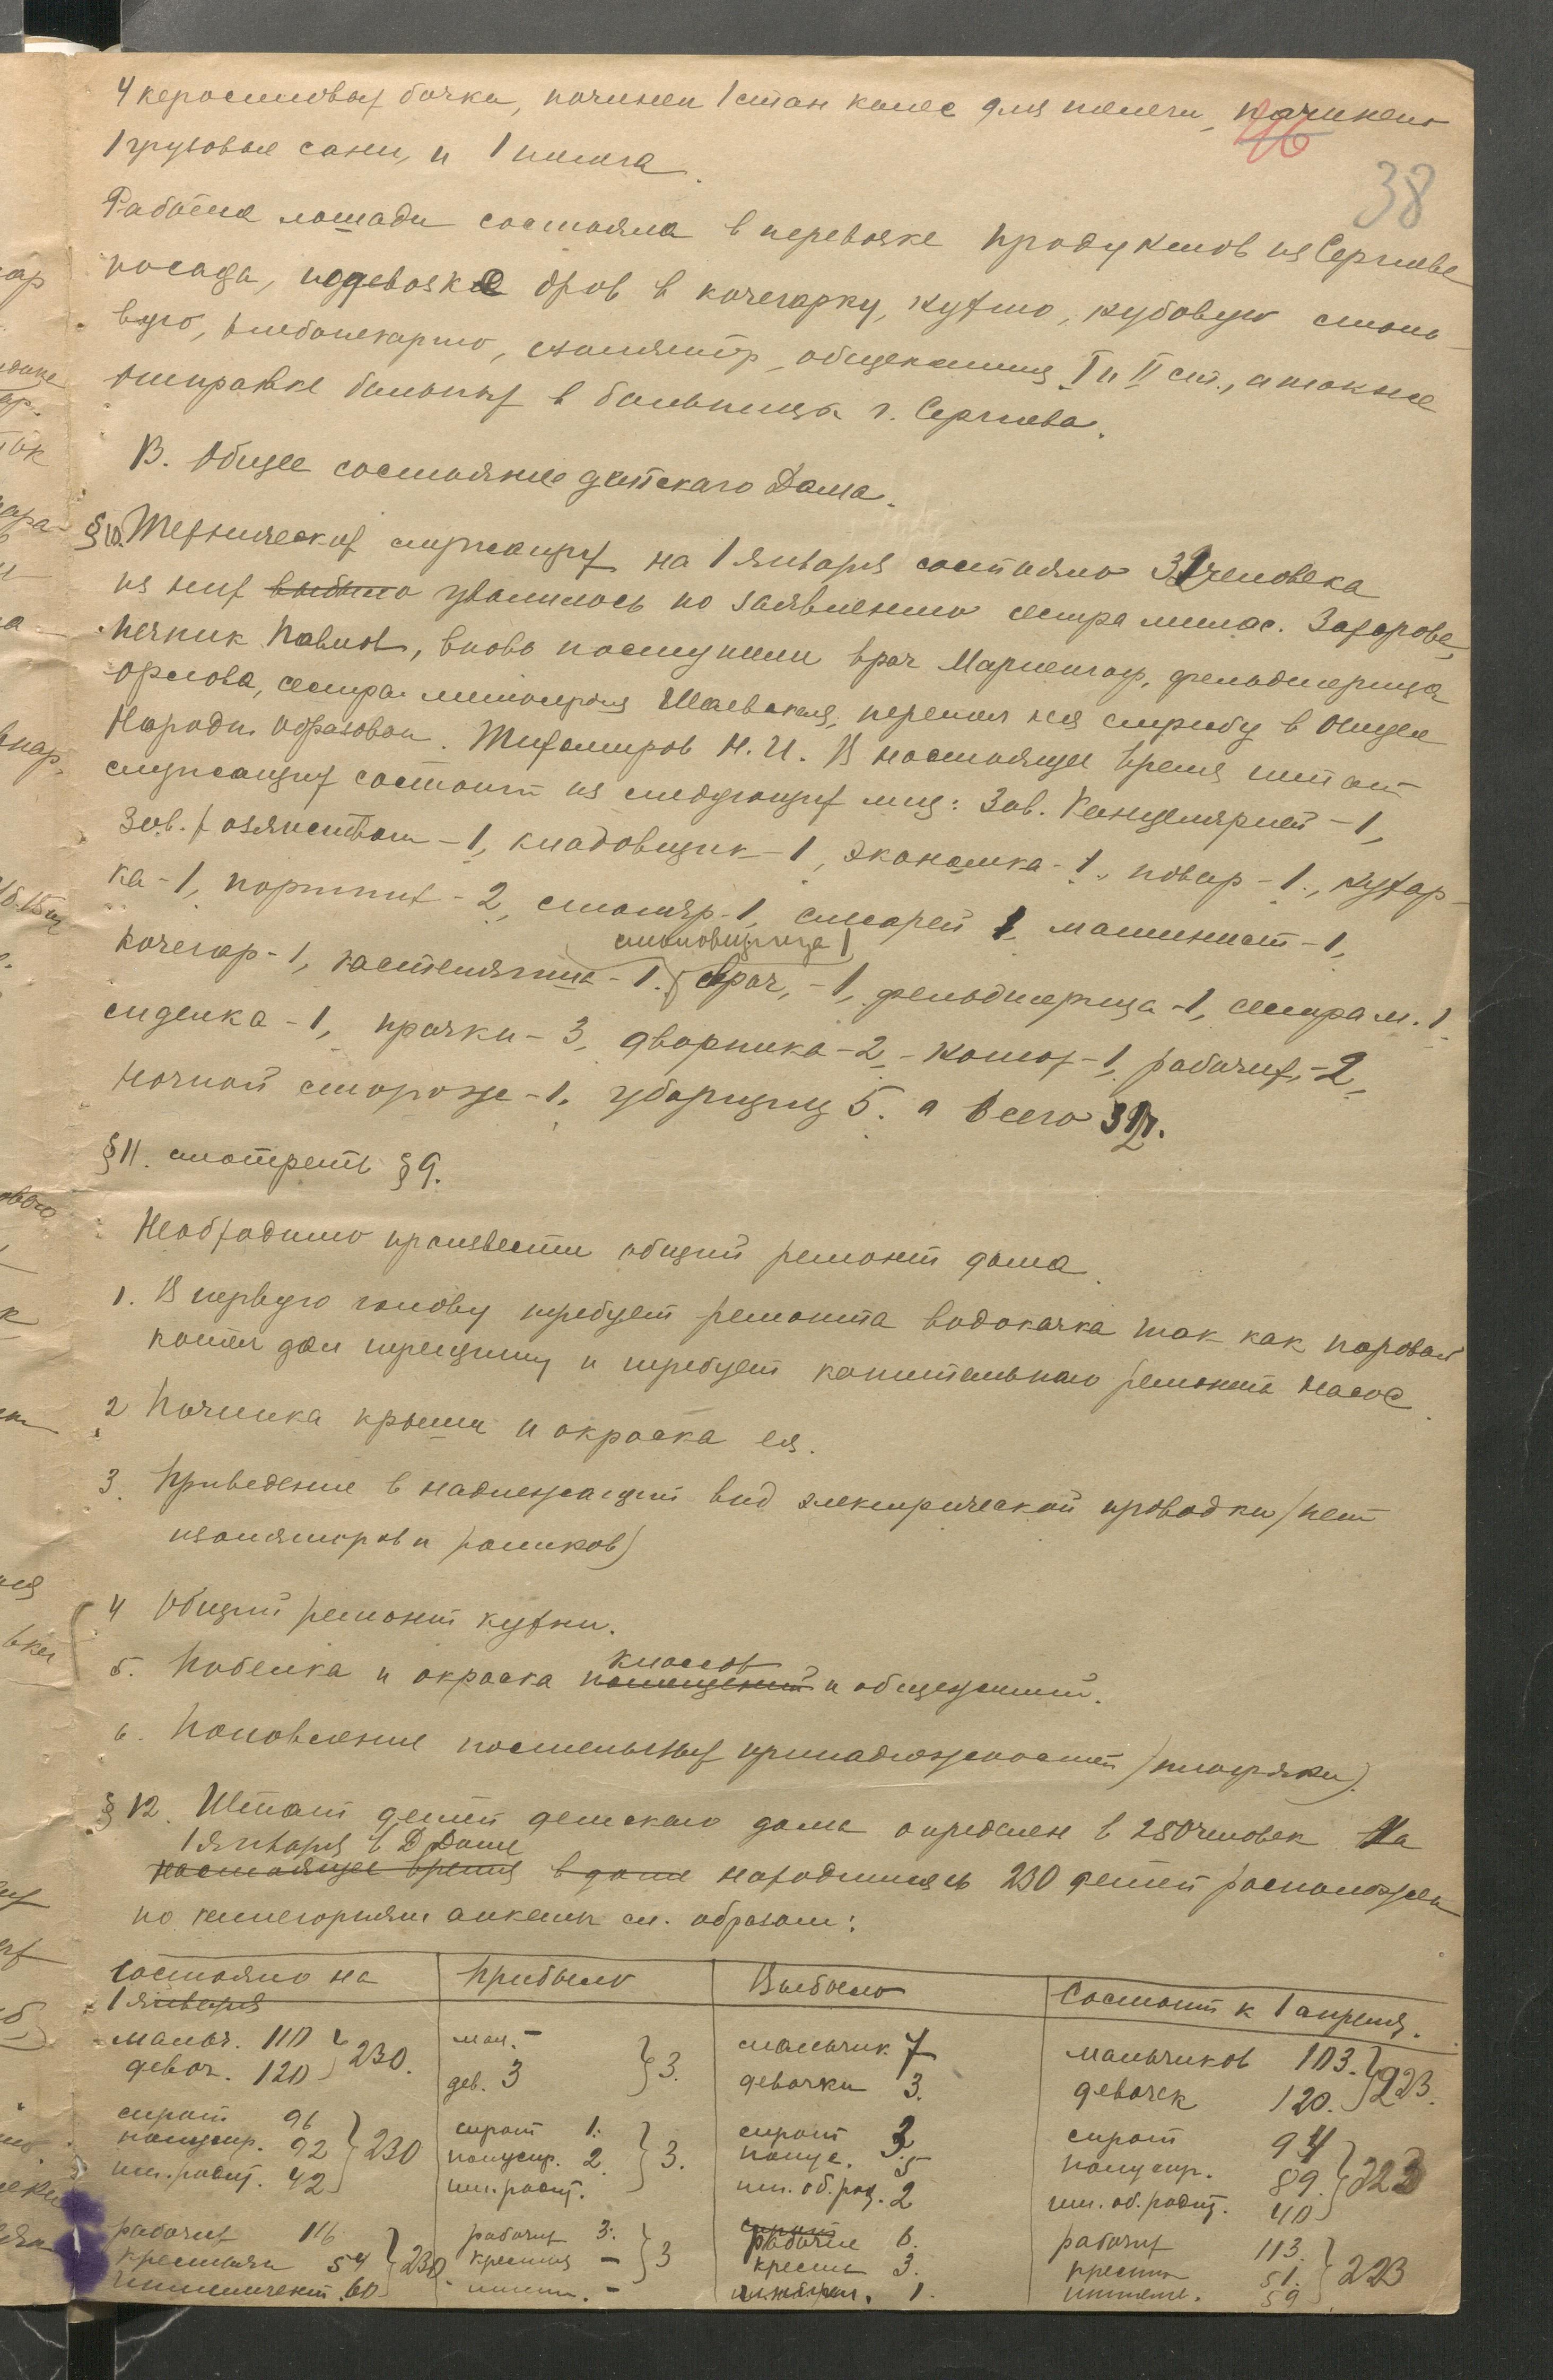 4 керосиновых бочка, починен 1 стан колес для телеги, починено
46
38
1 грузовые сани, и 1 телега.
Работа лошади состояла в перевозке продуктов из Сергиева
посада, подвозке дров в кочегарку, кухню, кубовую столо-
вую, хлебопекарню, изолятор, общежития I и II ст., а также
отправке больных в больницы г. Сергиева.
В. Общее состояние детскаго Дома.
§10. Технических служащих на 1 января состояло 32 человека
из них выбыло уволилось по заявлению сестра милос. Захарова,
печник Павлов, вновь поступили врач Мариенгоф, фельдшерица
Орлова, сестра милосердия Шаевская, перешел на службу в Отдел
Народн. Образован. Тихомиров Н. И. В настоящее время штат
служащих состоит из следующих лиц: Зав. Канцелярией - 1,
Зав. хозяйством - 1, кладовщик - 1, экономка - 1, повар - 1, кухар-
ка - 1, портних - 2, столяр - 1, слесарей 1, машинист - 1,
столовщица 1
кочегар - 1, кастелянша - 1. врач, - 1, фельдшерица - 1, сестра м. 1
сиделка - 1, прачки - 3, дворника - 2, конюх - 1, рабочих - 2,
ночной сторож - 1, уборщиц 5. а всего 32.
§11. смотреть §9.
Необходимо произвести общий ремонт дома.
1. В первую голову требует ремонта водокачка так как паровой
котел дал трещину и требует капитального ремонта насос.
2 Починка крыши и окраска ея.
3. Приведение в надлежащий вид электрической проводки (нет
изоляторов и роликов)
4 Общий ремонт кухни.
классов
5. Побелка и окраска помещений и общежитий.
6. Пополнение постельных принадлежностей (тюфяки).
§12. Штат детей детскаго дома определен в 280 человек На
1 января в Д Доме
настоящее время в доме находились 230 детей расположен
по категориям анкеты сл. образом:
Состояло на 1 января | Прибыло | Выбыло | Состоит к 1 апреля.
мальч. 110 } 230. | мал. - } 3. | мальчик. 7 | мальчиков 103. } 223.
девоч. 120 | дев. 3 | девочки 3. | девочек 120.
сирот 96 } 230 | сирот 1. } 3. | сирот 3. | сирот 94 } 223
полусир. 92 | полусир. 2. | полус. 5 | полусир. 89.
им. родит. 42 | им. родит. | им. об. род. 2 | им. об. родит. 40
рабочих 116 } 230 | рабочих 3. } 3 | сирот рабочие 6. | рабочих 113. } 223
крестьян 54 | крестьян - | крестьян 3. | крестьян 51.
интеллигент. 60 | интел. - | интеллиг. 1. | интеллиг. 59